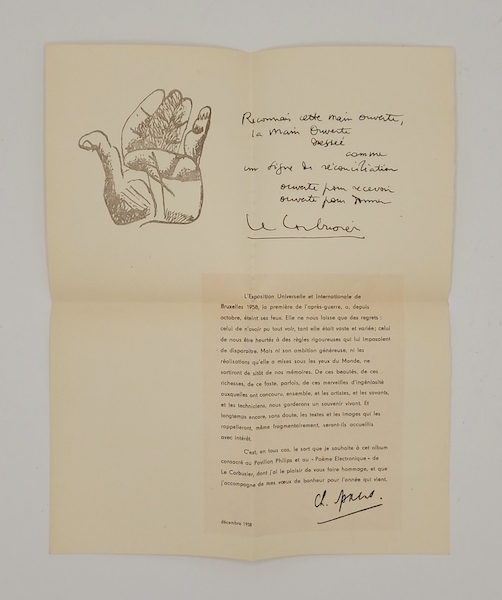 Reconnais cette main ouverte,
la Main Ouverte
Dressée
comme
un signe de réconciliation
ouverte pour recevoir
ouverte pour donner
Le Corbusier
L'Exposition Universelle et Internationale de
Bruxelles 1958, la première de l'après-guerre, a, depuis
octobre, éteint ses feux. Elle ne nous laisse que des regrets :
celui de n'avoir pu tout voir, tant elle était vaste et variée; celui
de nous être heurtés à des règles rigoureuses qui lui imposaient
de disparaître. Mais ni son ambition généreuse, ni les
réalisations qu'elle a mises sous les yeux du Monde, ne
sortiront de sitôt de nos mémoires. De ces beautés, de ces
richesses, de ce faste, parfois, de ces merveilles d'ingéniosité
auxquelles ont concouru, ensemble, et les artistes, et les savants,
et les techniciens, nous garderons un souvenir vivant. Et
longtemps encore, sans doute, les textes et les images qui les
rappelleront, même fragmentairement, seront-ils accueillis
avec intérêt.
C'est, en tous cas, le sort que je souhaite à cet album
consacré au Pavillon Philips et au « Poème Electronique » de
Le Corbusier, dont j'ai le plaisir de vous faire hommage, et que
j'accompagne de mes vœux de bonheur pour l'année qui vient.
Ch.
décembre 1958